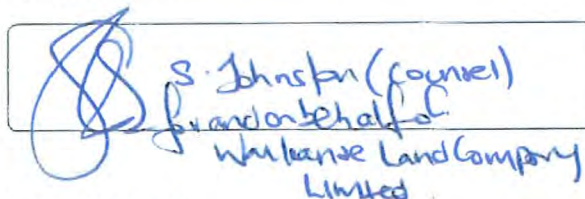 S. Johnston (counsel)
for and on behalf of
Land Company
Limited